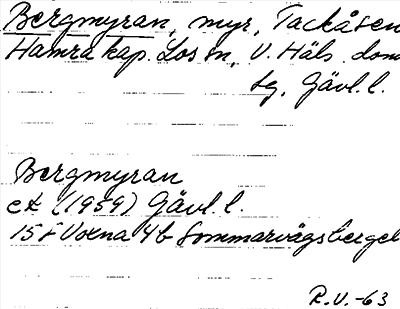 Bergmyran, myr, Tackåsen
Hamra kap. Los sn, V. Häls. dom
sg, Gävl. l.
Bergmyran
ek (1959) Gävl. l.
15F Voxna 4b Sommarvägsberget
R.V. -63